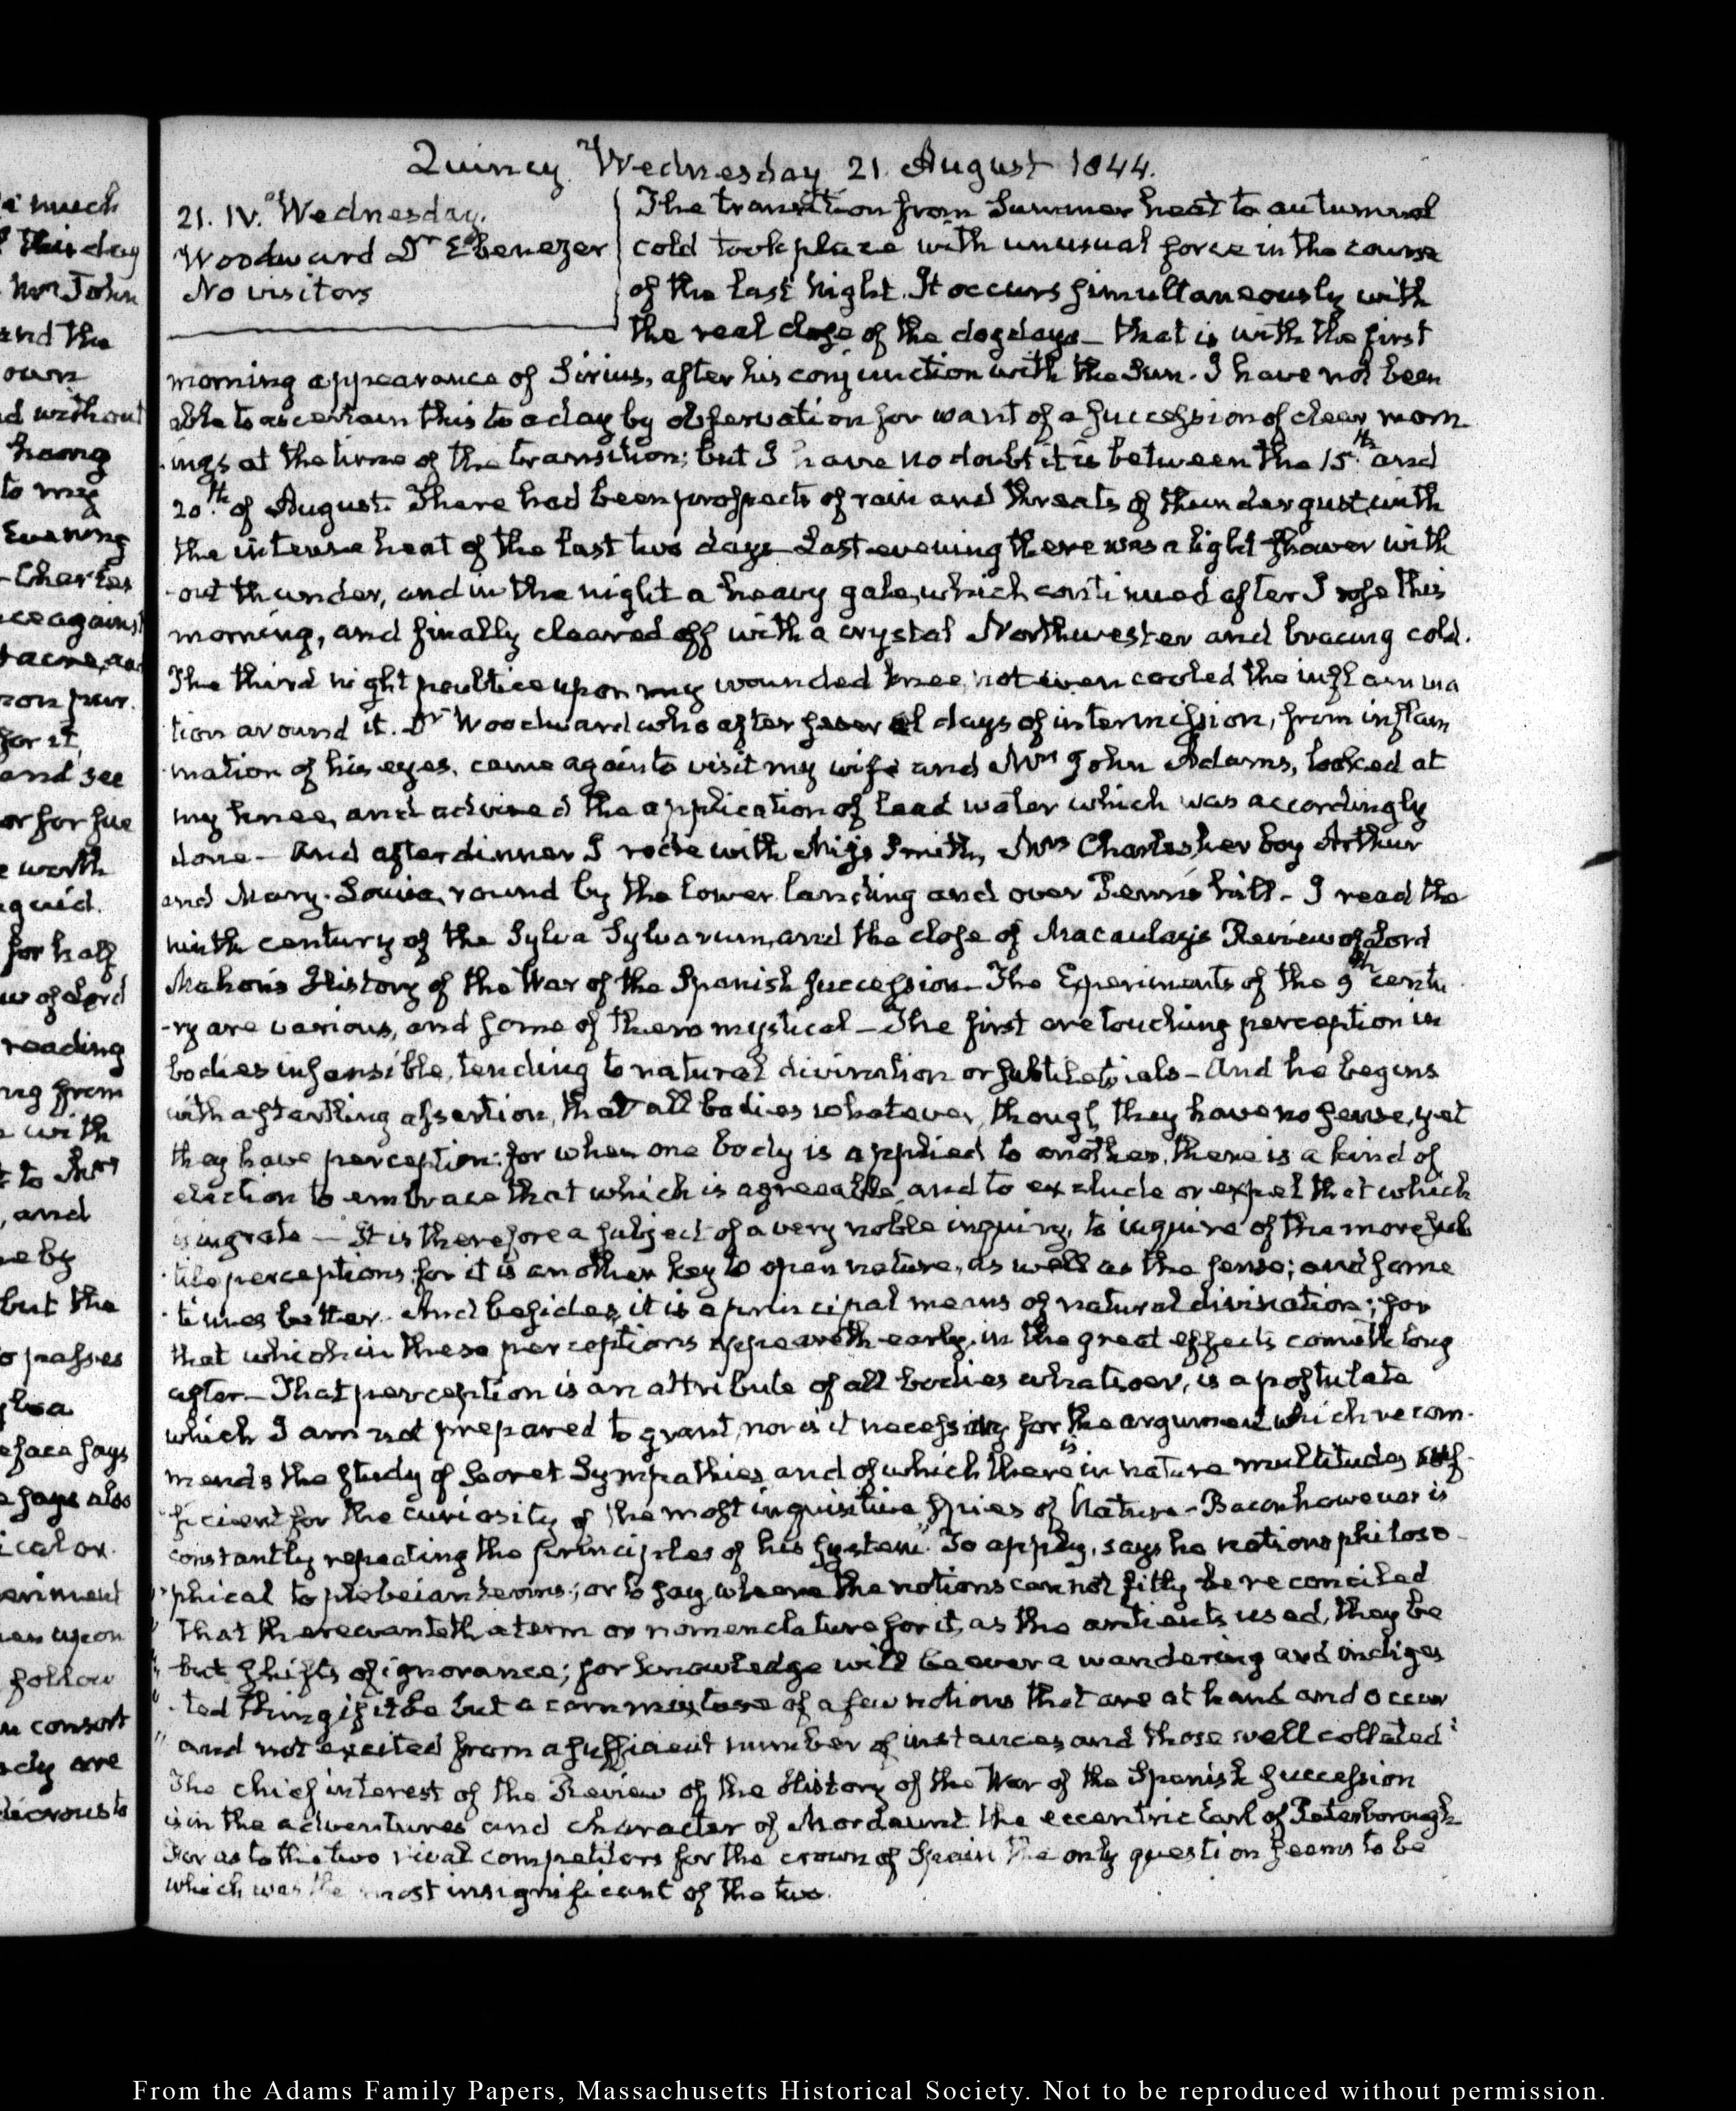 Quincy Wednesday 21. August 1844.
21. IV. Wednesday.
Woodward Dr Ebenezer
No visitors
The transition from Summer heat to autumnal
cold took place with unusual force in the course
of the last night. It occurs simultaneously with
the real close of the dogdays — that is with the first
morning appearance of Sirius, after his conjunction with the Sun. I have not been
able to ascertain this to a day by observation for want of a succession of clear morn
-ings at the time of the transition; but I have no doubt it is between the 15th and
20th of August. There had been prospects of rain and threats of thundergust, with
the intense heat of the last two days — Last evening there was a light shower with
-out thunder, and in the night a heavy gale, which continued after I rose this
morning, and finally cleared off with a crystal Northwester and bracing cold.
The third night poultice upon my wounded knee, not even cooled the inflamma
tion around it. Dr Woodward who after several days of intermission, from inflam
-mation of his eyes, came again to visit my wife and Mrs John Adams, looked at
my knee, and advised the application of lead water which was accordingly
done — And after dinner I rode with Miss Smith, Mrs Charles, her boy Arthur
and Mary-Louisa, round by the lower landing and over Penn's hill — I read the
ninth century of the Sylva Sylvarum, and the close of Macaulay's Review of Lord
Mahon's History of the War of the Spanish succession — The Experiments of the 9th centu
-ry are various, and some of them mystical — The first are touching perception in
bodies insensible, tending to natural divination or subtile trials — And he begins
with a startling assertion, that all bodies whatever, though they have no sense, yet
they have perception: for when one body is applied to another, there is a kind of
election to embrace that which is agreeable, and to exclude or expel that which
is ingrate — It is therefore a subject of a very noble inquiry, to inquire of the more sub
-tile perceptions; for it is another key to open nature, as well as the sense; and some
-times better. And besides, it is a principal means of natural divination; for
that which in these perceptions appeareth early, in the great effects cometh long
after — That perception is an attribute of all bodies whatsoev, is a postulate
which I am not prepared to grant, nor is it necessary for the argument which recom-
mends the study of Secret Sympathies, and of which there is in nature multitudes suf-
ficient for the curiosity of the most inquisitive spies of Nature — Bacon however is
constantly repeating the principles of his system. "To apply, says he notions philoso-
"phical to plebeian terms; or to say, where the notions cannot fitly be reconciled
"that there wanteth a term or nomenclature for it, as the antients used, they be
"but shifts of ignorance; for knowledge will be ever a wandering and indiges
"ted thing if it be but a commixture of a few notions that are at hand and occur
"and not excited from a sufficient number of instances and those well collated"
The chief interest of the Review of the History of the War of the Spanish succession
is in the adventures and character of Mordaunt the eccentric Earl of Peterborough
For as to the two rival competitors for the crown of Spain the only question seems to be
which was the most insignificant of the two.
a much
this day
Mrs John
and the
own
d without
hang
to my
Evening
Charles
ce against
for it
and see
or for five
worth
for half
w of Lord
reading
ng from
with
t to Mrs
, and
e by
but the
o passes
eface says
e says also
ical or
eriment
en upon
follow
n consort
dy are
From the Adams Family Papers, Massachusetts Historical Society. Not to be reproduced without permission.